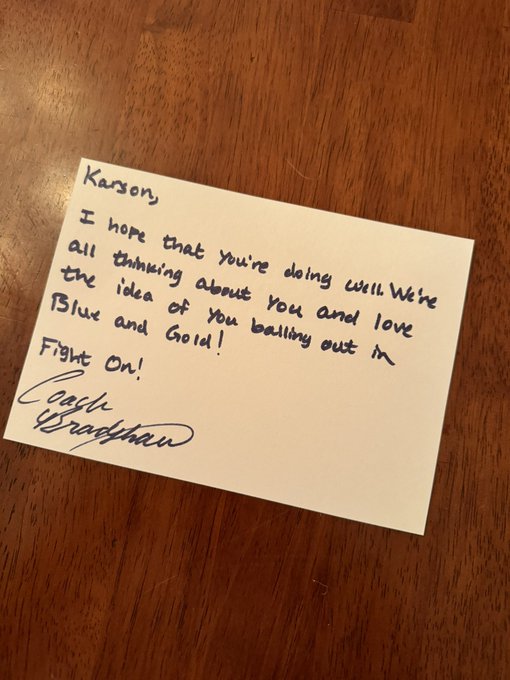 Karson,
I hope that you're doing well. We're
all thinking about you and love
the idea of you balling out in
Blue and Gold!
Fight On!
Coach
Bradshaw